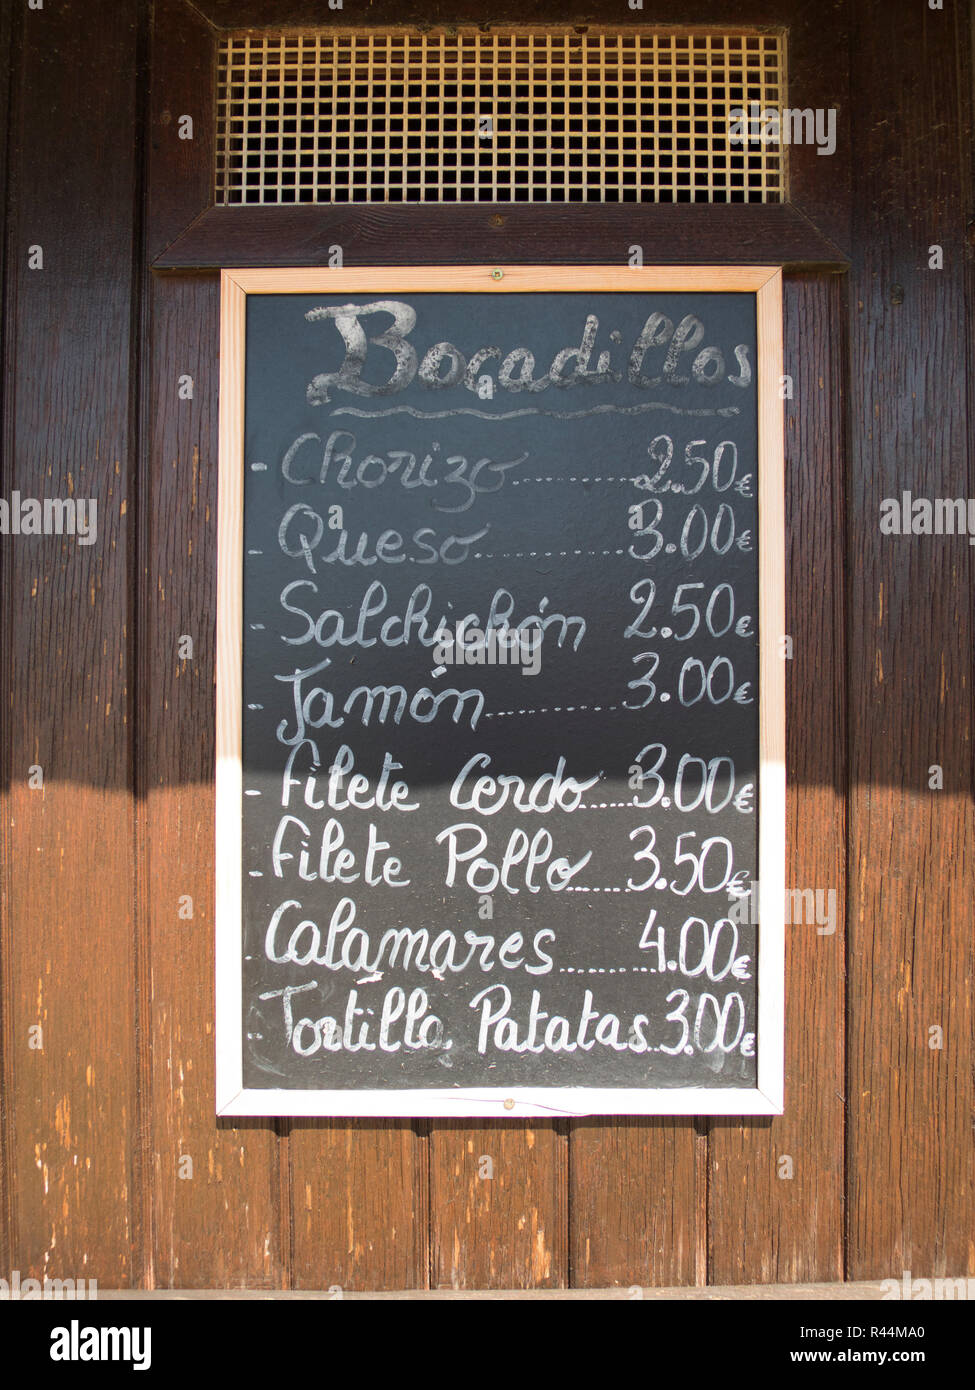 Bocadillos
- Chorizo.............. 2.50€
- Queso............... 3.00€
- Salchichón 2.50€
- Jamón.............. 3.00€
- Filete Cerdo...... 3.00€
- Filete Pollo....... 3.50€
- Calamares.......... 4.00€
- Tortilla Patatas... 3.00€
alamy
Image ID: R44MA0
www.alamy.com